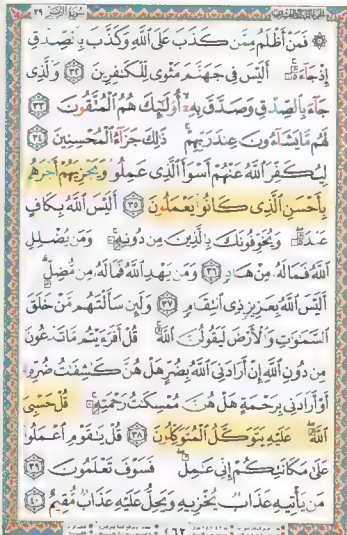 الجزء الرابع والعشرون سورة الزمر ٣٩
۞ فَمَنْ أَظْلَمُ مِمَّن كَذَبَ عَلَى ٱللَّهِ وَكَذَّبَ بِٱلصِّدْقِ
إِذْ جَآءَهُۥٓ ۚ أَلَيْسَ فِى جَهَنَّمَ مَثْوًى لِّلْكَٰفِرِينَ ٣٢ وَٱلَّذِى
جَآءَ بِٱلصِّدْقِ وَصَدَّقَ بِهِۦٓ ۙ أُو۟لَٰٓئِكَ هُمُ ٱلْمُتَّقُونَ ٣٣
لَهُم مَّا يَشَآءُونَ عِندَ رَبِّهِمْ ۚ ذَٰلِكَ جَزَآءُ ٱلْمُحْسِنِينَ ٣٤
لِيُكَفِّرَ ٱللَّهُ عَنْهُمْ أَسْوَأَ ٱلَّذِى عَمِلُوا۟ وَيَجْزِيَهُمْ أَجْرَهُم
بِأَحْسَنِ ٱلَّذِى كَانُوا۟ يَعْمَلُونَ ٣٥ أَلَيْسَ ٱللَّهُ بِكَافٍ
عَبْدَهُۥ ۖ وَيُخَوِّفُونَكَ بِٱلَّذِينَ مِن دُونِهِۦ ۚ وَمَن يُضْلِلِ
ٱللَّهُ فَمَا لَهُۥ مِنْ هَادٍ ٣٦ وَمَن يَهْدِ ٱللَّهُ فَمَا لَهُۥ مِن مُّضِلٍّ ۗ
أَلَيْسَ ٱللَّهُ بِعَزِيزٍ ذِى ٱنتِقَامٍ ٣٧ وَلَئِن سَأَلْتَهُم مَّنْ خَلَقَ
ٱلسَّمَٰوَٰتِ وَٱلْأَرْضَ لَيَقُولُنَّ ٱللَّهُ ۚ قُلْ أَفَرَءَيْتُم مَّا تَدْعُونَ
مِن دُونِ ٱللَّهِ إِنْ أَرَادَنِىَ ٱللَّهُ بِضُرٍّ هَلْ هُنَّ كَٰشِفَٰتُ ضُرِّهِۦٓ
أَوْ أَرَادَنِى بِرَحْمَةٍ هَلْ هُنَّ مُمْسِكَٰتُ رَحْمَتِهِۦ ۚ قُلْ حَسْبِىَ
ٱللَّهُ ۖ عَلَيْهِ يَتَوَكَّلُ ٱلْمُتَوَكِّلُونَ ٣٨ قُلْ يَٰقَوْمِ ٱعْمَلُوا۟
عَلَىٰ مَكَانَتِكُمْ إِنِّى عَٰمِلٌ ۖ فَسَوْفَ تَعْلَمُونَ ٣٩
مَن يَأْتِيهِ عَذَابٌ يُخْزِيهِ وَيَحِلُّ عَلَيْهِ عَذَابٌ مُّقِيمٌ ٤٠
٤٦٢